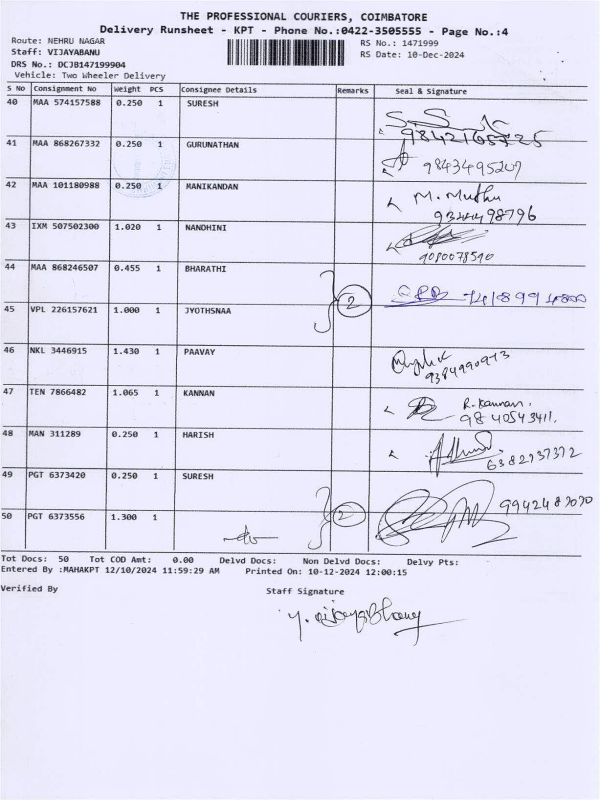 THE PROFESSIONAL COURIERS, COIMBATORE
Delivery Runsheet - KPT - Phone No.:0422-3505555 - Page No.:4
Route: NEHRU NAGAR
RS No.: 1471999
Staff: VIJAYABANU
RS Date: 10-Dec-2024
DRS No.: DCJB147199904
Vehicle: Two Wheeler Delivery
S No Consignment No Weight PCS Consignee Details Remarks Seal & Signature
40 MAA 574157588 0.250 1 SURESH
41 MAA 868267332 0.250 1 GURUNATHAN
9843495207
42 MAA 101180988 0.250 1 MANIKANDAN M. Muthu
43 IXM 507502300 1.020 1 NANDHINI
9080078590
44 MAA 868246507 0.455 1 BHARATHI
2
45 VPL 226157621 1.000 1 JYOTHSNAA
46 NKL 3446915 1.430 1 PAAVAY
9384990913
47 TEN 7866482 1.065 1 KANNAN R. Kannan.
9840543411.
48 MAN 311289 0.250 1 HARISH
6382737372
49 PGT 6373420 0.250 1 SURESH
2
50 PGT 6373556 1.300 1
Tot Docs: 50 Tot COD Amt: 0.00 Delvd Docs: Non Delvd Docs: Delvy Pts:
Entered By :MAHAKPT 12/10/2024 11:59:29 AM Printed On: 10-12-2024 12:00:15
Verified By Staff Signature